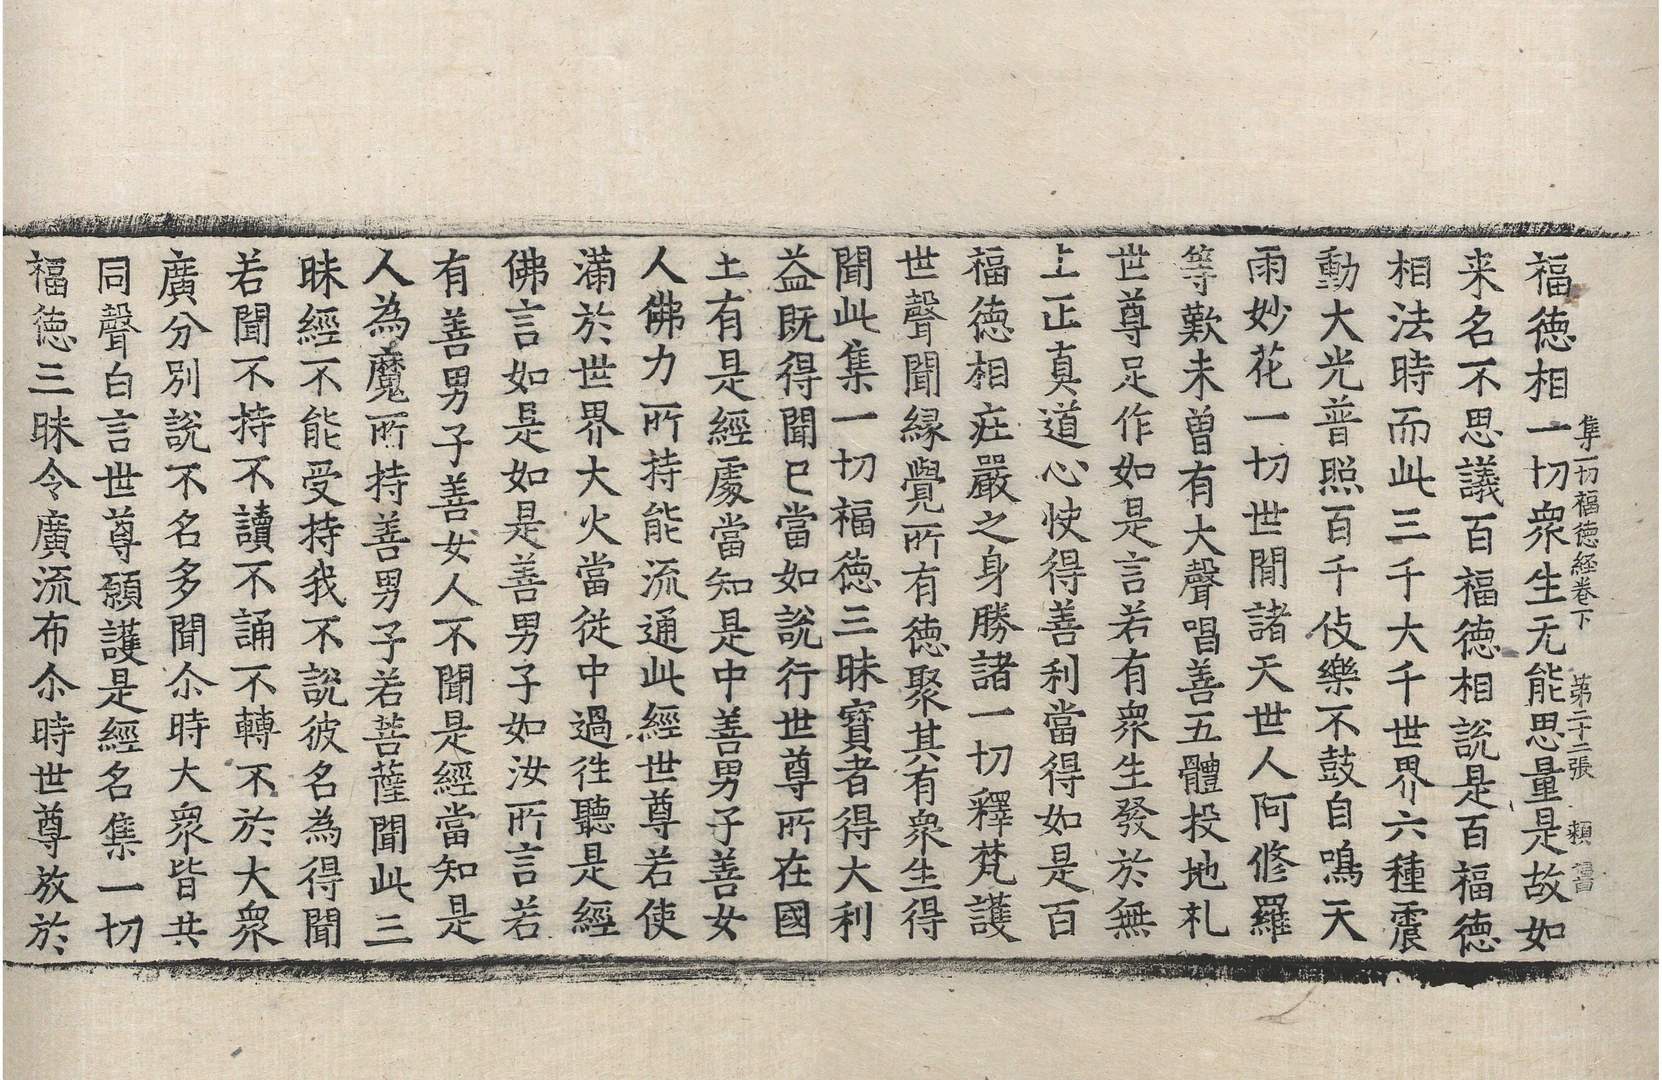 集一切福德経卷下 第二十二張 頼
福徳相一切衆生无能思量是故如
来名不思議百福徳相說是百福徳
相法時而此三千大千世界六種震
動大光普照百千伎樂不鼓自鳴天
雨妙花一切世閒諸天世人阿修羅
等歎未曾有大聲唱善五體投地礼
世尊足作如是言若有衆生發於無
上正真道心快得善利當得如是百
福徳相庄嚴之身勝諸一切釋梵護
世聲聞縁覺所有徳聚其有衆生得
聞此集一切福徳三昧寳者得大利
益既得聞已當如說行世尊所在國
土有是經處當知是中善男子善女
人佛力所持能流通此經世尊若使
滿於世界大火當從中過往聽是經
佛言如是如是善男子如汝所言若
有善男子善女人不聞是經當知是
人為魔所持善男子若菩薩聞此三
昧經不能受持我不說彼名為得聞
若聞不持不讀不誦不轉不於大衆
廣分別說不名多聞尒時大衆皆共
同聲白言世尊願護是經名集一切
福徳三昧令廣流布尒時世尊放於